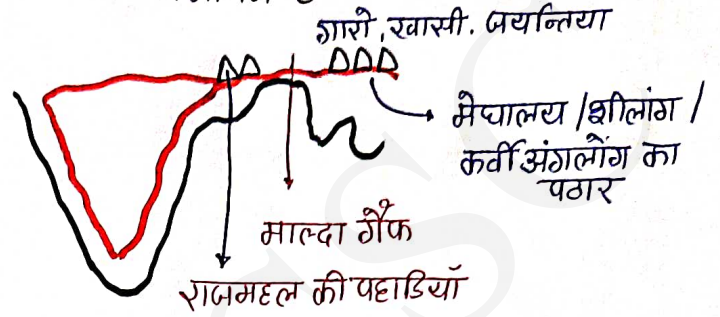 गारो, खासी. जयन्तिया
मेघालय / शीलांग /
कर्वी अंगलोंग का
पठार
माल्दा गैफ
राजमहल की पहाडियाँ